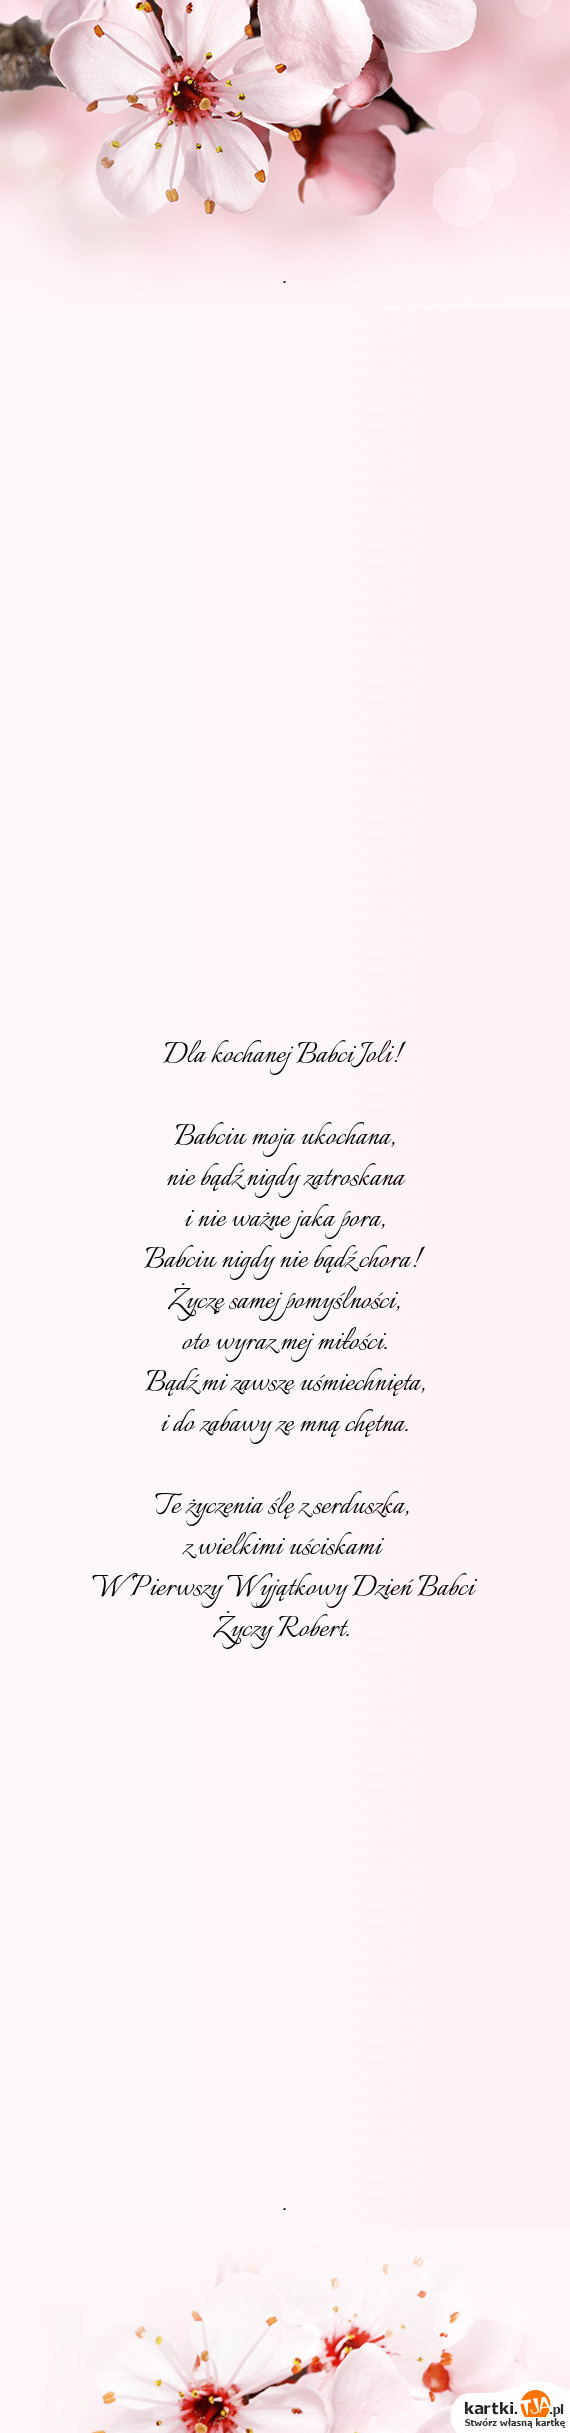 .
Dla kochanej Babci Joli!
Babciu moja ukochana,
nie bądź nigdy zatroskana
i nie ważne jaka pora,
Babciu nigdy nie bądź chora!
Życzę samej pomyślności,
oto wyraz mej miłości.
Bądź mi zawsze uśmiechnięta,
i do zabawy ze mną chętna.
Te życzenia ślę z serduszka,
z wielkimi uściskami
W Pierwszy Wyjątkowy Dzień Babci
Życzy Robert.
.
kartki.TJA.pl
Stwórz własną kartkę